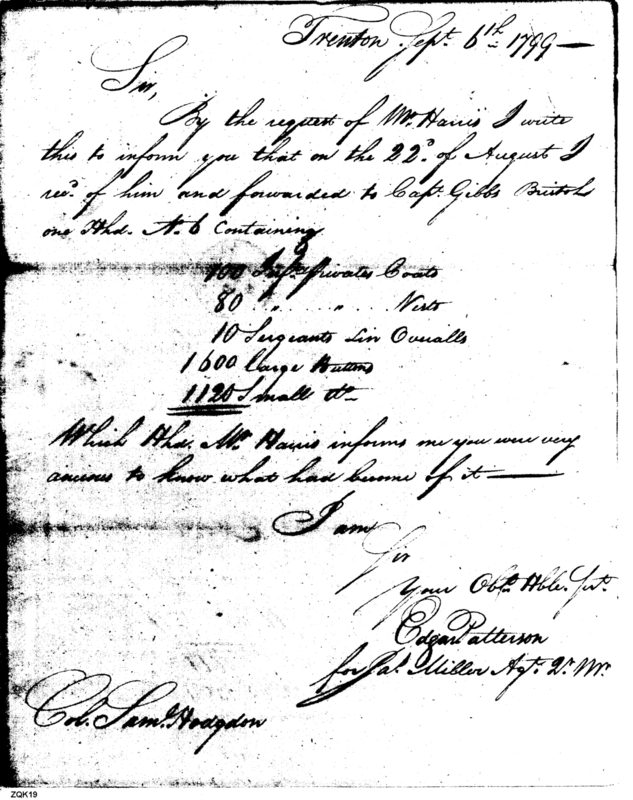 Trenton Sept. 6th 1799 —
Sir,
By the request of Mr. Harris I write
this to inform you that on the 22d. of August I
recd. of him and forwarded to Capt. Gibbs Bristol
one Hhd. No. 6 Containing
100 Inf.y privates Coats
80 " " Vests
10 Sergeants Lin Overalls
1600 large Buttons
1120 Small do
Which Hhd. Mr. Harris informs me you were very
anxious to know what had become of it —
I am
Sir
Your Obt. Hble. Svt.
Edgar Patterson
for Jas. Miller Agt. Qr. Mr.
Col. Saml. Hodgdon
ZQK19